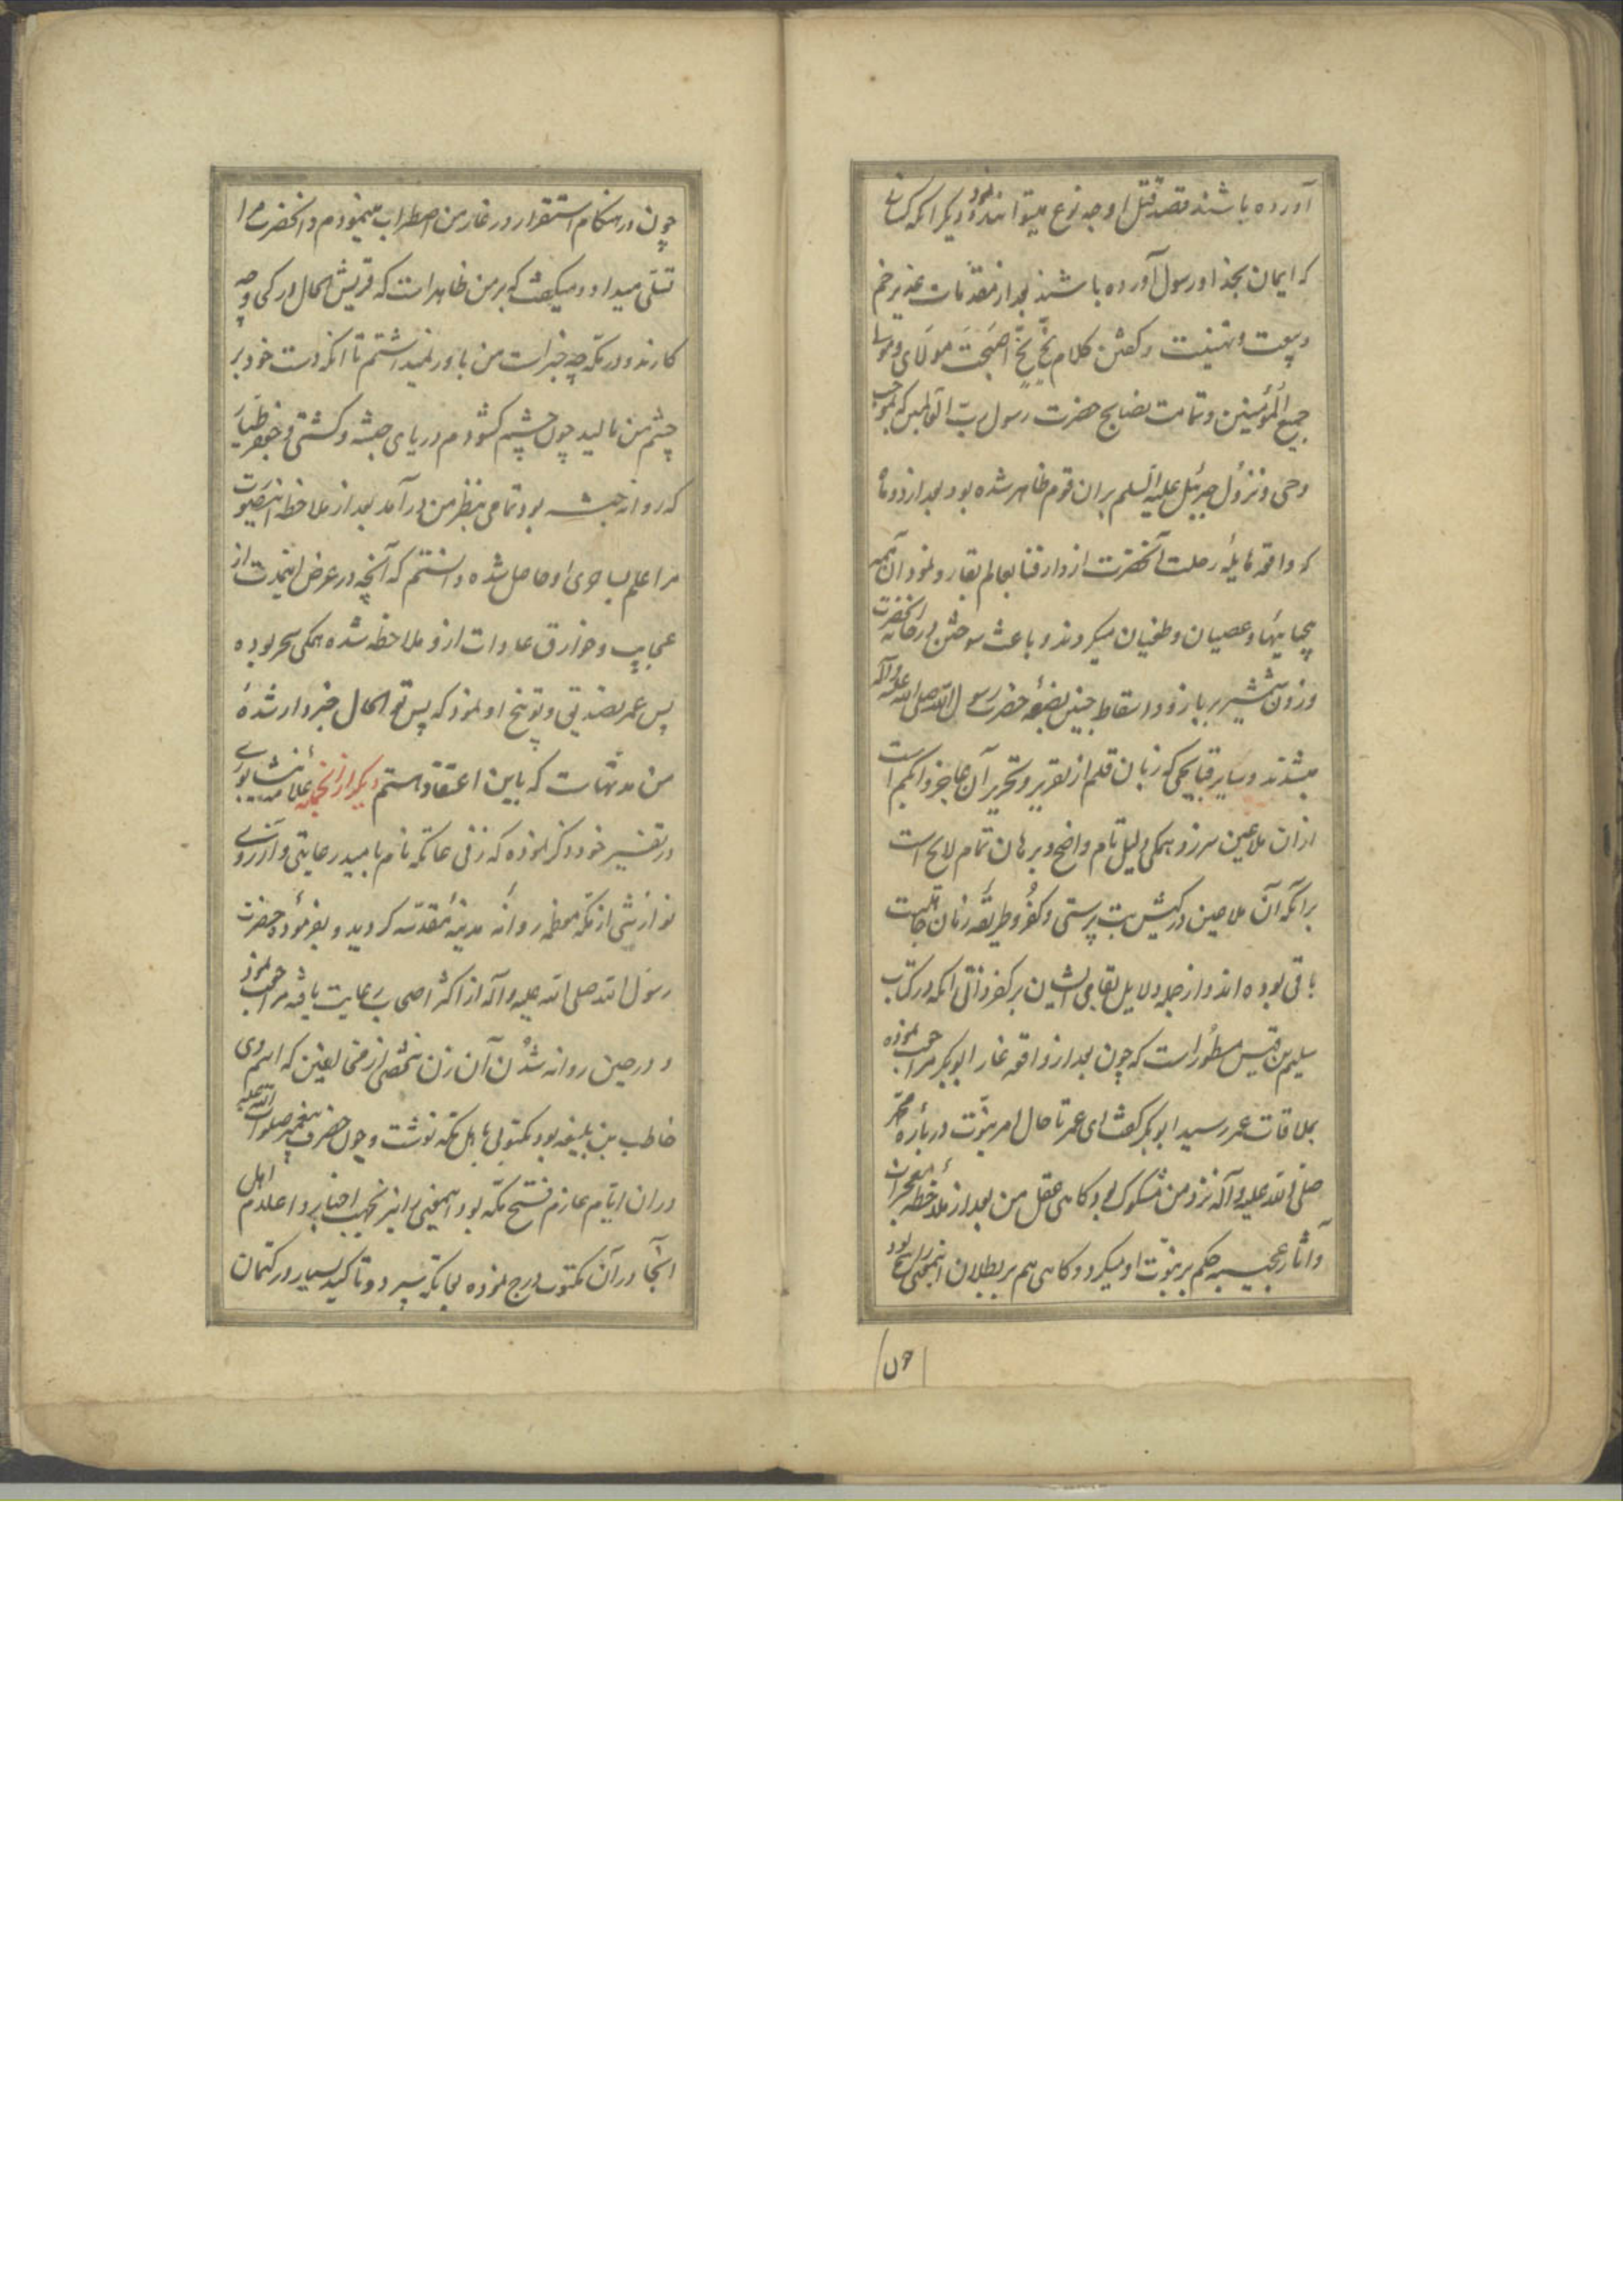 آورده باشند قصد قتل او چه نوع میتوانند نمود و دیگر انکه کسانی
که ایمان بخدا و رسول آورده باشند بعد از مقدمات غدیر خم
و بیعت و تهنیت و کفتن کلام بَخٍّ بَخٍّ اصبَحتَ مولای و مولا
جمیع المؤمنین و تمامت نصایح حضرت رسول ربّ العالمین که بموجب
وحی و نزول جبرئیل علیه السلم بران قوم ظاهر شده بود بعد از دو ماه
که واقعه هایلهٔ رحلت آنحضرت از دار فنا بعالم بقا رو نمود آن همه
بیحیاییها و عصیان و طغیان میکردند و باعث سوختن در خانه انحضرت
و زدن شمشیر بر بازو و اسقاط جنین بضعهٔ حضرت رسول الله صلی الله علیه و آله
میشدند و سایر قبایحی که زبان قلم از تقریر و تحریر آن عاجز و ابکم است
ازان ملاعین سر زد همکی دلیل تام واضح و برهان تمام لایح است
برآنکه آن ملاعین در کیش بت پرستی و کفر و طریقهٔ زمان جاهلیت
باقی بوده اند و از جمله دلایل بقای ایشان بر کفر ذاتی انکه در کتاب
سلیم بن قیس مسطور است که چون بعد از واقعه غار ابوبکر مراجعت نموده
بملاقات عمر رسید ابوبکر کفت ای عمر تا حال امر نبوّت دربارهٔ محمد
صلی الله علیه و آله نزد من مشکوک بود کاهی عقل من بعد از ملاحظهٔ معجزات
و آثار عجیبه حکم بر نبوّت او میکرد و کاهی هم بر بطلان اینمعنی راجع بود
چون در هنکام استقرار در غار من اضطراب مینمودم و انحضرت مرا
تسلّی میداد و میکفت که بر من ظاهر است که قریش الحال در کی و چه
کارند و در مکّه چه خبر است من باور نمیداشتم تا انکه دست خود بر
چشم من مالید چون چشم کشودم دریای حبشه و کشتی و جعفر طیار
که روانه حبشه بود تمامی بنظر من در آمد بعد از ملاحظه اینصورت
مرا علم بساحری او حاصل شده دانستم که آنچه در عرض اینمدت از
عجایب و خوارق عادات ازو ملاحظه شده همکی سحر بوده
پس عمر تصدیق و توبیخ او نمود که پس تو الحال خبردار شدهٔ
من مدتهاست که باین اعتقاد هستم دیکر از انجمله علامه نیشابوری
در تفسیر خود ذکر نموده که زنی عاتکه نام بامید رعایتی و آرزوی
نوازشی از مکّه معظمه روانهٔ مدینهٔ مقدسه کردید و بفرمودهٔ حضرت
رسول الله صلی الله علیه و آله از اکثر اصحاب رعایت یافته مراجعت نمود
و در حین روانه شدن آن زن شخصی از مخالفین که اسم وی
خاطب بن بلیغه بود مکتوبی باهل مکّه نوشت و چون حضرت پیغمبر صلوات الله علیه
دران ایّام عازم فتح مکّه بود اینمعنی را نیز بجهت اخبار و اعلام اهل
آنجا در آن مکتوب درج نموده بعاتکه سپرد و تاکید بسیار در کتمان